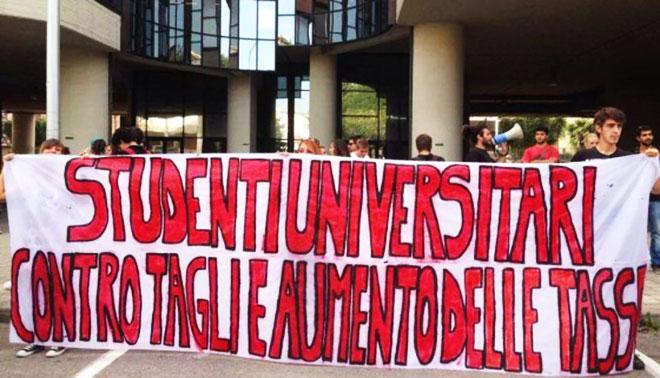 STUDENTI UNIVERSITARI
CONTRO TAGLI E AUMENTO DELLE TASSE